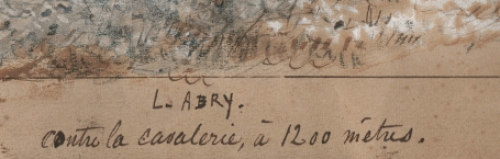 L. ABRY.
contre la cavalerie, à 1200 mètres.